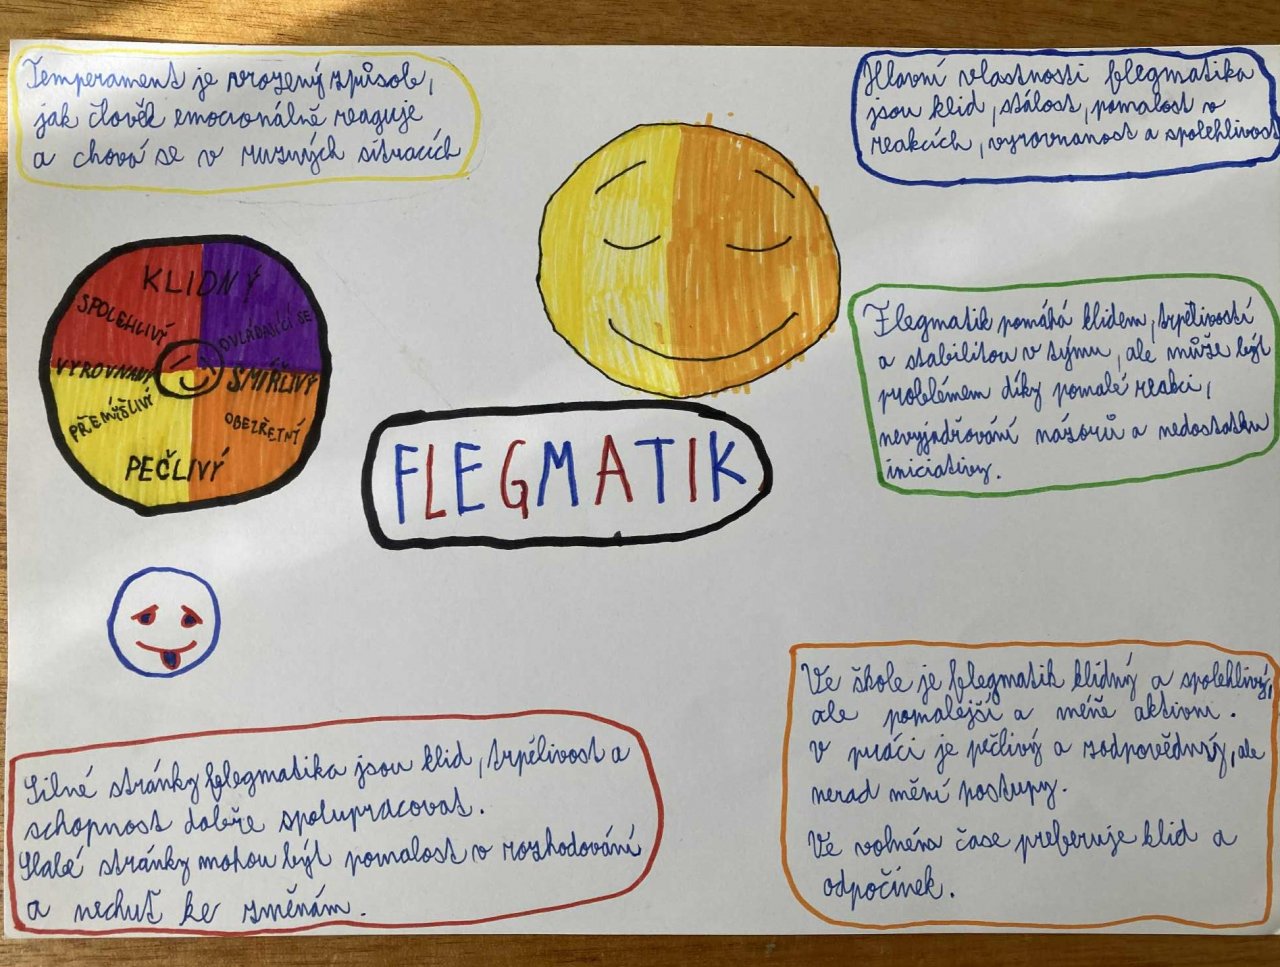 Temperament je vrozený způsob,
jak člověk emocionálně reaguje
a chová se v ruzných sitracích
Hlavní vlastnosti flegmatika
jsou klid, stálost, pomalost v
reakcích, vyrovnanost a spolehlivost
KLIDNÝ
SPOLEHLIVÝ
OVLÁDAJÍCÍ SE
VYROVNANÝ
SMÍŘLIVÝ
PŘEMÝŠLIVÝ
OBEZŘETNÝ
PEČLIVÝ
FLEGMATIK
Flegmatik pomáhá klidem, trpělivostí
a stabilitou v týmu, ale může být
problémem díky pomalé reakci,
nevyjadřování názorů a nedostatku
iniciativy.
Silné stránky flegmatika jsou klid, trpělivost a
schopnost dobře spolupracovat.
Slabé stránky mohou být pomalost v rozhodování
a nechuť ke změnám.
Ve škole je flegmatik klidný a spolehlivý,
ale pomalejší a méňe aktivni.
v práci je pečlivý a zodpovědný, ale
nerad mění postupy.
Ve volném čase preferuje klid a
odpočinek.